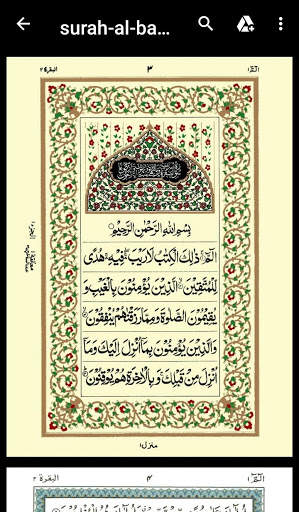 surah-al-ba...
البقرة ٢
٣
الٓمّٓ ١
بِسْمِ اللّٰهِ الرَّحْمٰنِ الرَّحِيْمِ
الٓمّٓ ذٰلِكَ الْكِتٰبُ لَا رَيْبَ فِيْهِ هُدًى
لِّلْمُتَّقِيْنَ الَّذِيْنَ يُؤْمِنُوْنَ بِالْغَيْبِ وَ
يُقِيْمُوْنَ الصَّلٰوةَ وَمِمَّا رَزَقْنٰهُمْ يُنْفِقُوْنَ
وَالَّذِيْنَ يُؤْمِنُوْنَ بِمَآ اُنْزِلَ اِلَيْكَ وَمَآ
اُنْزِلَ مِنْ قَبْلِكَ وَبِالْاٰخِرَةِ هُمْ يُوْقِنُوْنَ
منزل ١
البقرة ٢
٤
الٓمّٓ ١